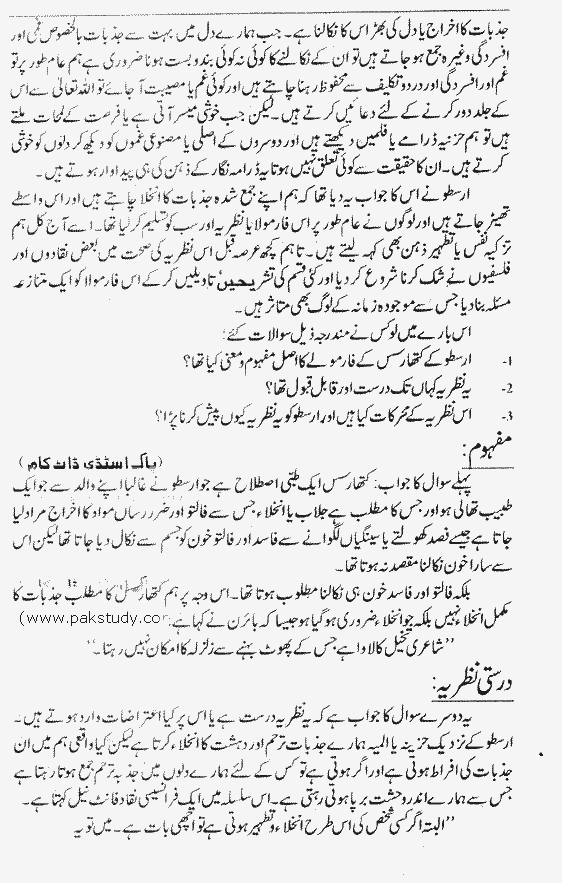 جذبات کا اخراج یا دل کی بھڑاس کا نکالنا ہے۔ جب ہمارے دل میں بہت سے جذبات بالخصوص غمی اور
افسردگی وغیرہ جمع ہو جاتے ہیں تو ان کے نکالنے کا کوئی نہ کوئی بندوبست ہونا ضروری ہے ہم عام طور پر تو
غم اور افسردگی اور درد و تکلیف سے محفوظ رہنا چاہتے ہیں اور کوئی غم یا مصیبت آ جائے تو اللہ تعالیٰ سے اس
کے جلد دور کرنے کے لئے دعائیں کرتے ہیں۔ لیکن جب خوشی میسر آتی ہے یا فرصت کے لمحات ملتے
ہیں تو ہم حزنیہ ڈرامے یا فلمیں دیکھتے ہیں اور دوسروں کے اصلی یا مصنوعی غموں کو دیکھ کر دلوں کو خوشی
کرتے ہیں۔ ان کا حقیقت سے کوئی تعلق نہیں ہوتا یہ ڈرامہ نگار کے ذہن کی ہی پیداوار ہوتے ہیں۔
ارسطو نے اس کا جواب یہ دیا تھا کہ ہم اپنے جمع شدہ جذبات کا انخلا چاہتے ہیں اور اس واسطے
تھیٹر جاتے ہیں اور لوگوں نے عام طور پر اس فارمولا یا نظریہ اور سب کو تسلیم کر لیا تھا۔ اسے آج کل ہم
تزکیہ نفس یا تطہیر ذہن بھی کہہ لیتے ہیں۔ تاہم کچھ عرصہ قبل اس نظریہ کی صحت میں بعض نقادوں اور
فلسفیوں نے شک کرنا شروع کر دیا اور کئی قسم کی تشریحیں، تاویلیں کر کے اس فارمولا کو ایک متنازعہ
مسئلہ بنا دیا جس سے موجودہ زمانہ کے لوگ بھی متاثر ہیں۔
اس بارے میں لوکس نے مندرجہ ذیل سوالات کئے:
1- ارسطو کے کتھارسس کے فارمولے کا اصل مفہوم و معنی کیا تھا؟
2- یہ نظریہ کہاں تک درست اور قابل قبول تھا؟
3- اس نظریہ کے محرکات کیا ہیں اور ارسطو کو یہ نظریہ کیوں پیش کرنا پڑا؟
مفہوم:
(پاک اسٹڈی ڈاٹ کام)
پہلے سوال کا جواب: کتھارسس ایک طبی اصطلاح ہے جو ارسطو نے غالباً اپنے والد سے جو ایک
طبیب تھا لی ہو اور جس کا مطلب ہے جلاب یا انخلاء جس سے فالتو اور ضرر رساں مواد کا اخراج مراد لیا
جاتا ہے جیسے فصد کھولنے یا سینگیاں لگوانے سے فاسد اور فالتو خون کو جسم سے نکال دیا جاتا تھا لیکن اس
سے سارا خون نکالنا مقصد نہ ہوتا تھا۔
بلکہ فالتو اور فاسد خون ہی نکالنا مطلوب ہوتا تھا۔ اس وجہ پر ہم کتھارسس کا مطلب جذبات کا
مکمل انخلاء نہیں بلکہ جو انخلاء ضروری ہو گیا ہو جیسا کہ بائرن نے کہا ہے: (www.pakstudy.com)
"شاعری تخیل کا لاوا ہے جس کے پھوٹ بہنے سے زلزلہ کا امکان نہیں رہتا۔"
درستی نظریہ:
یہ دوسرے سوال کا جواب ہے کہ یہ نظریہ درست ہے یا اس پر کیا اعتراضات وارد ہوتے ہیں۔
ارسطو کے نزدیک حزینہ یا المیہ ہمارے جذبات ترحم اور دہشت کا انخلاء کرتا ہے لیکن کیا واقعی ہم میں ان
جذبات کی افراط ہوتی ہے اور اگر ہوتی ہے تو کس کے لئے ہمارے دلوں میں جذبہ ترحم جمع ہوتا رہتا ہے
جس سے ہمارے اندر وحشت برپا ہوتی رہتی ہے۔ اس سلسلہ میں ایک فرانسیسی نقاد فانٹ نیل کہتا ہے۔
"البتہ اگر کسی شخص کی اس طرح انخلاء و تطہیر ہوتی ہے تو اچھی بات ہے۔ میں تو یہ